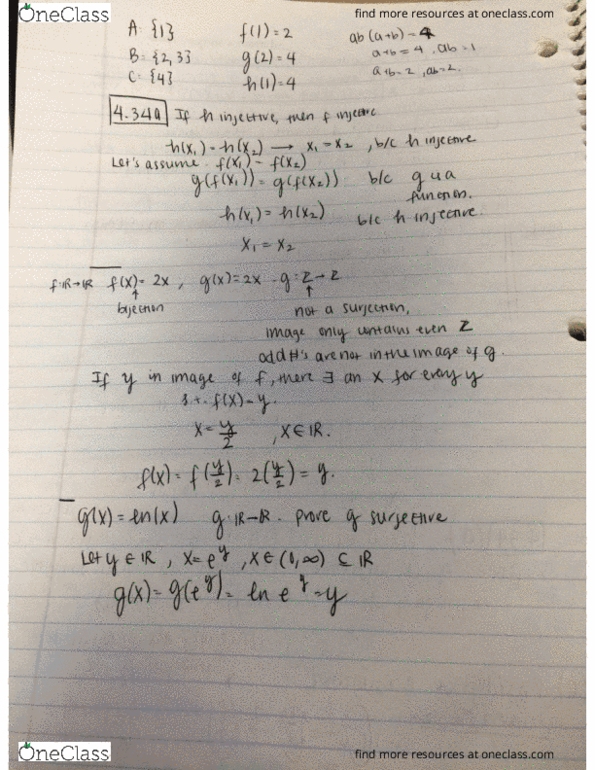 OneClass
find more resources at oneclass.com
A: {1} f(1)=2 ab(a+b)=4
B: {2,3} g(2)=4 a+b=4, ab=1
C: {4} h(1)=4 a+b=2, ab=2.
4.34a If h injective, then f injective
h(x₁)=h(x₂) → x₁=x₂, b/c h injective
Let's assume f(x₁)=f(x₂)
g(f(x₁))=g(f(x₂)) b/c g is a function.
h(x₁)=h(x₂) b/c h injective.
x₁=x₂
f:ℝ→ℝ f(x)=2x, g(x)=2x g:ℤ→ℤ
↑ ↑
bijection not a surjection,
image only contains even ℤ
odd #'s are not in the image of g.
If y in image of f, there ∃ an x for every y
s.t. f(x)=y.
x=y/2, x∈ℝ.
f(x)=f(y/2)=2(y/2)=y.
g(x)=ln(x) g:ℝ→ℝ. prove g surjective
Let y∈ℝ, x=e^y, x∈(0,∞)⊆ℝ
g(x)=g(e^y)=ln e^y=y
OneClass
find more resources at oneclass.com